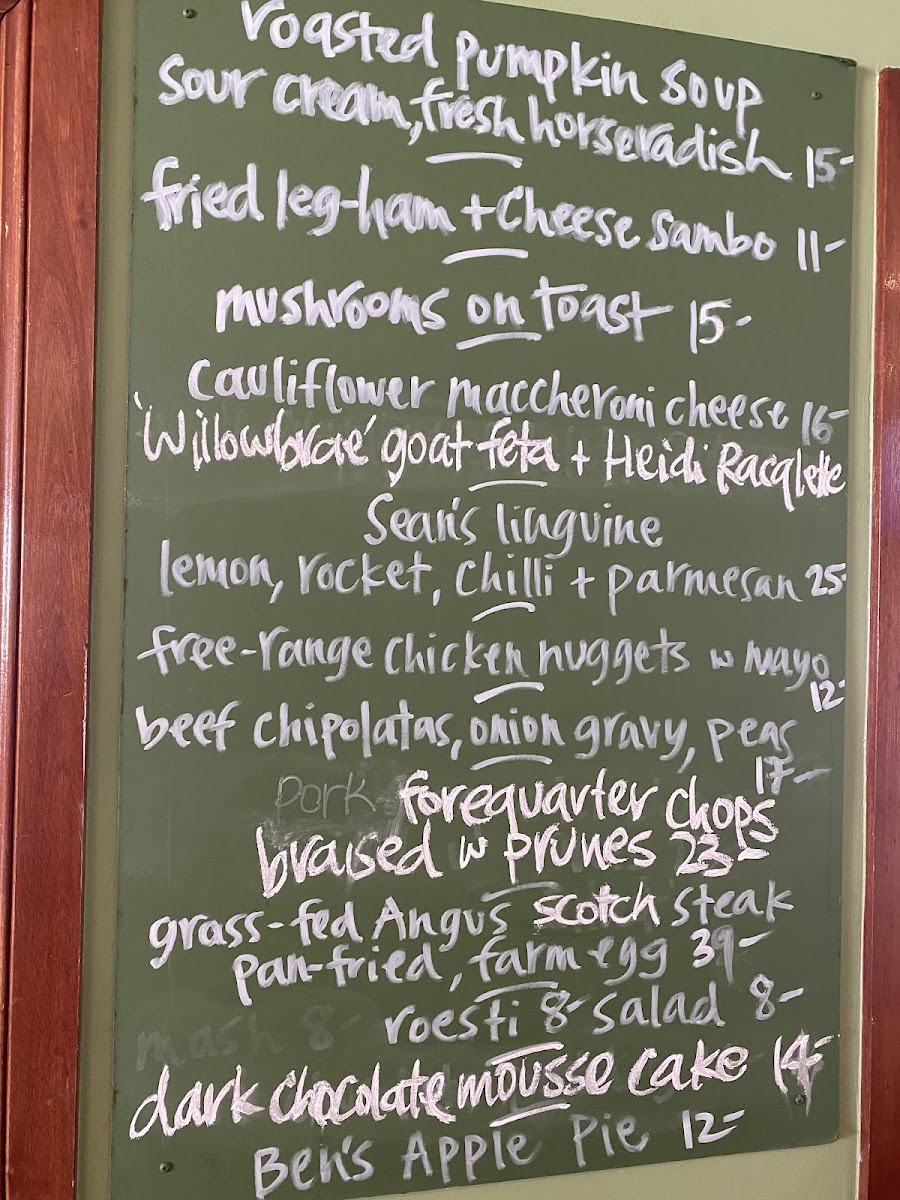 roasted pumpkin soup
sour cream, fresh horseradish 15-
fried leg-ham + cheese sambo 11-
mushrooms on toast 15-
Cauliflower maccheroni cheese 16-
'Willowbrae' goat feta + Heidi Racqlette
Sean's linguine
lemon, rocket, chilli + parmesan 25-
free-range chicken nuggets w mayo
12-
beef chipolatas, onion gravy, peas
17-
pork forequarter chops
braised w prunes 23-
grass-fed Angus scotch steak
pan-fried, farm egg 39-
mash 8- roesti 8- salad 8-
dark chocolate mousse cake 14-
Ben's Apple Pie 12-